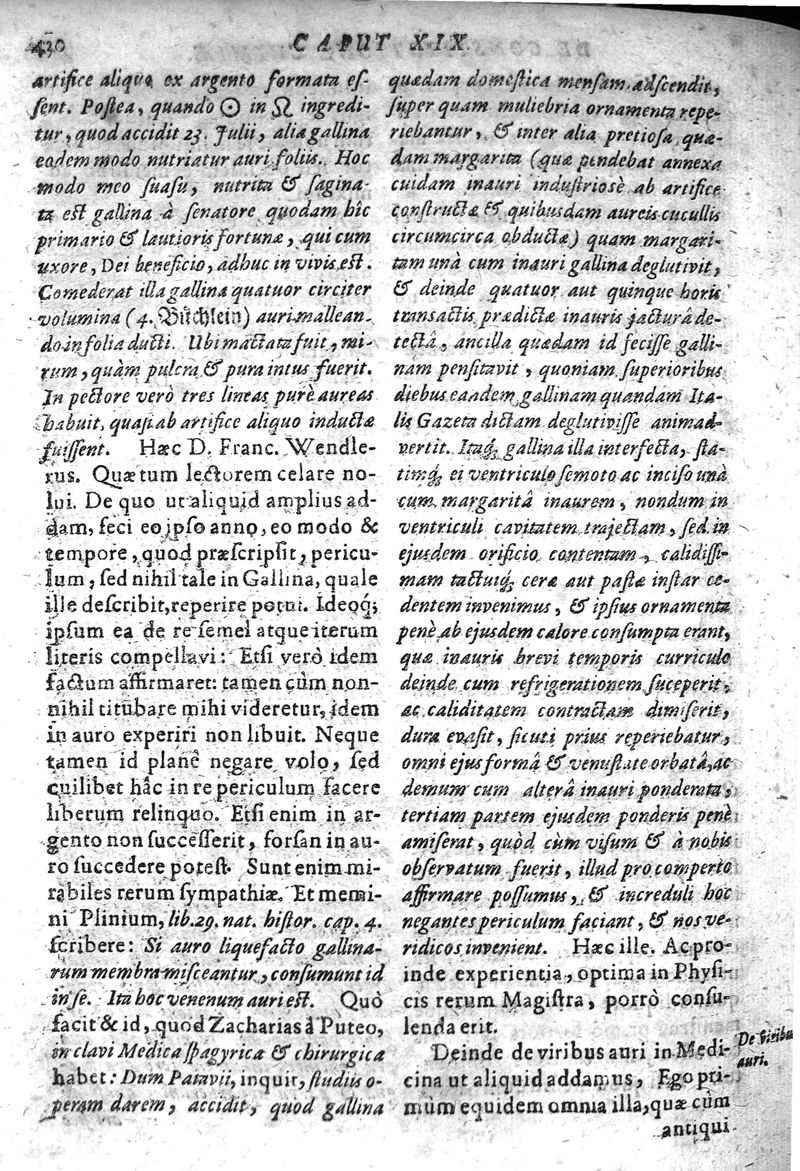 430
CAPUT XIX.
artifice aliquo ex argento formata es-
sent. Postea, quando ☉ in ♌ ingredi-
tur, quod accidit 23. Julii, alia gallina
eodem modo nutriatur auri foliis. Hoc
modo meo suasu, nutrita & sagina-
ta est gallina à senatore quodam hîc
primario & lautioris fortunæ, qui cum
uxore, Dei beneficio, adhuc in vivis est.
Comederat illa gallina quatuor circiter
volumina (4. Büchlein) auri mallean-
do in folia ducti. Ubi mactata fuit, mi-
rum, quàm pulcra & pura intus fuerit.
In pectore verò tres lineas purè aureas
habuit, quasi ab artifice aliquo inductæ
fuissent. Hæc D. Franc. Wendle-
rus. Quæ tum lectorem celare no-
lui. De quo ut aliquid amplius ad-
dam, feci eo ipso anno, eo modo &
tempore, quod præscripsit, pericu-
lum, sed nihil tale in Gallina, quale
ille describit, reperire potui. Ideoq́;
ipsum ea de re semel atque iterum
literis compellavi: Etsi verò idem
factum affirmaret: tamen cùm non-
nihil titubare mihi videretur, idem
in auro experiri non libuit. Neque
tamen id planè negare volo, sed
cuilibet hâc in re periculum facere
liberum relinquo. Etsi enim in ar-
gento non successerit, forsan in au-
ro succedere potest. Sunt enim mi-
rabiles rerum sympathiæ. Et memi-
ni Plinium, lib. 29. nat. histor. cap. 4.
scribere: Si auro liquefacto gallina-
rum membra misceantur, consumunt id
in se. Ita hoc venenum auri est. Quò
facit & id, quod Zacharias à Puteo,
in clavi Medica spagyrica & chirurgica
habet: Dum Patavii, inquit, studiis o-
peram darem, accidit, quod gallina
quædam domestica mensam adscendit,
super quam muliebria ornamenta repe-
riebantur, & inter alia pretiosa quæ-
dam margarita (quæ pendebat annexa
cuidam inauri industriosè ab artifice
constructæ & quibusdam aureis cucullis
circumcirca obductæ) quam margari-
tam unà cum inauri gallina deglutivit,
& deinde quatuor aut quinque horis
transactis prædictæ inauris jacturâ de-
tectâ, ancilla quædam id fecisse galli-
nam pensitavit, quoniam superioribus
diebus eandem gallinam quandam Ita-
lis Gazeta dictam deglutivisse animad-
vertit. Itaq́; gallina illa interfecta, sta-
timq́; ei ventriculo semoto ac inciso unà
cum margaritâ inaurem, nondum in
ventriculi cavitatem trajectam, sed in
ejusdem orificio contentam, calidissi-
mam tactuiq́; ceræ aut pastæ instar ce-
dentem invenimus, & ipsius ornamenta
penè ab ejusdem calore consumpta erant,
quæ inauris brevi temporis curriculo
deinde cum refrigerationem suceperit,
ac caliditatem contractam dimiserit,
dura evasit, sicuti prius reperiebatur,
omni ejus formâ & venustate orbatâ, ac
demum cum alterâ inauri ponderata,
tertiam partem ejusdem ponderis penè
amiserat, quòd cùm visum & à nobis
observatum fuerit, illud pro comperto
affirmare possumus, & increduli hoc
negantes periculum faciant, & nos ve-
ridicos invenient. Hæc ille. Ac pro-
inde experientia, optima in Physi-
cis rerum Magistra, porrò consu-
lenda erit.
Deinde de viribus auri in Medi-
cina ut aliquid addamus, Ego pri-
mum equidem omnia illa, quæ cùm
antiqui
De viribus
auri.